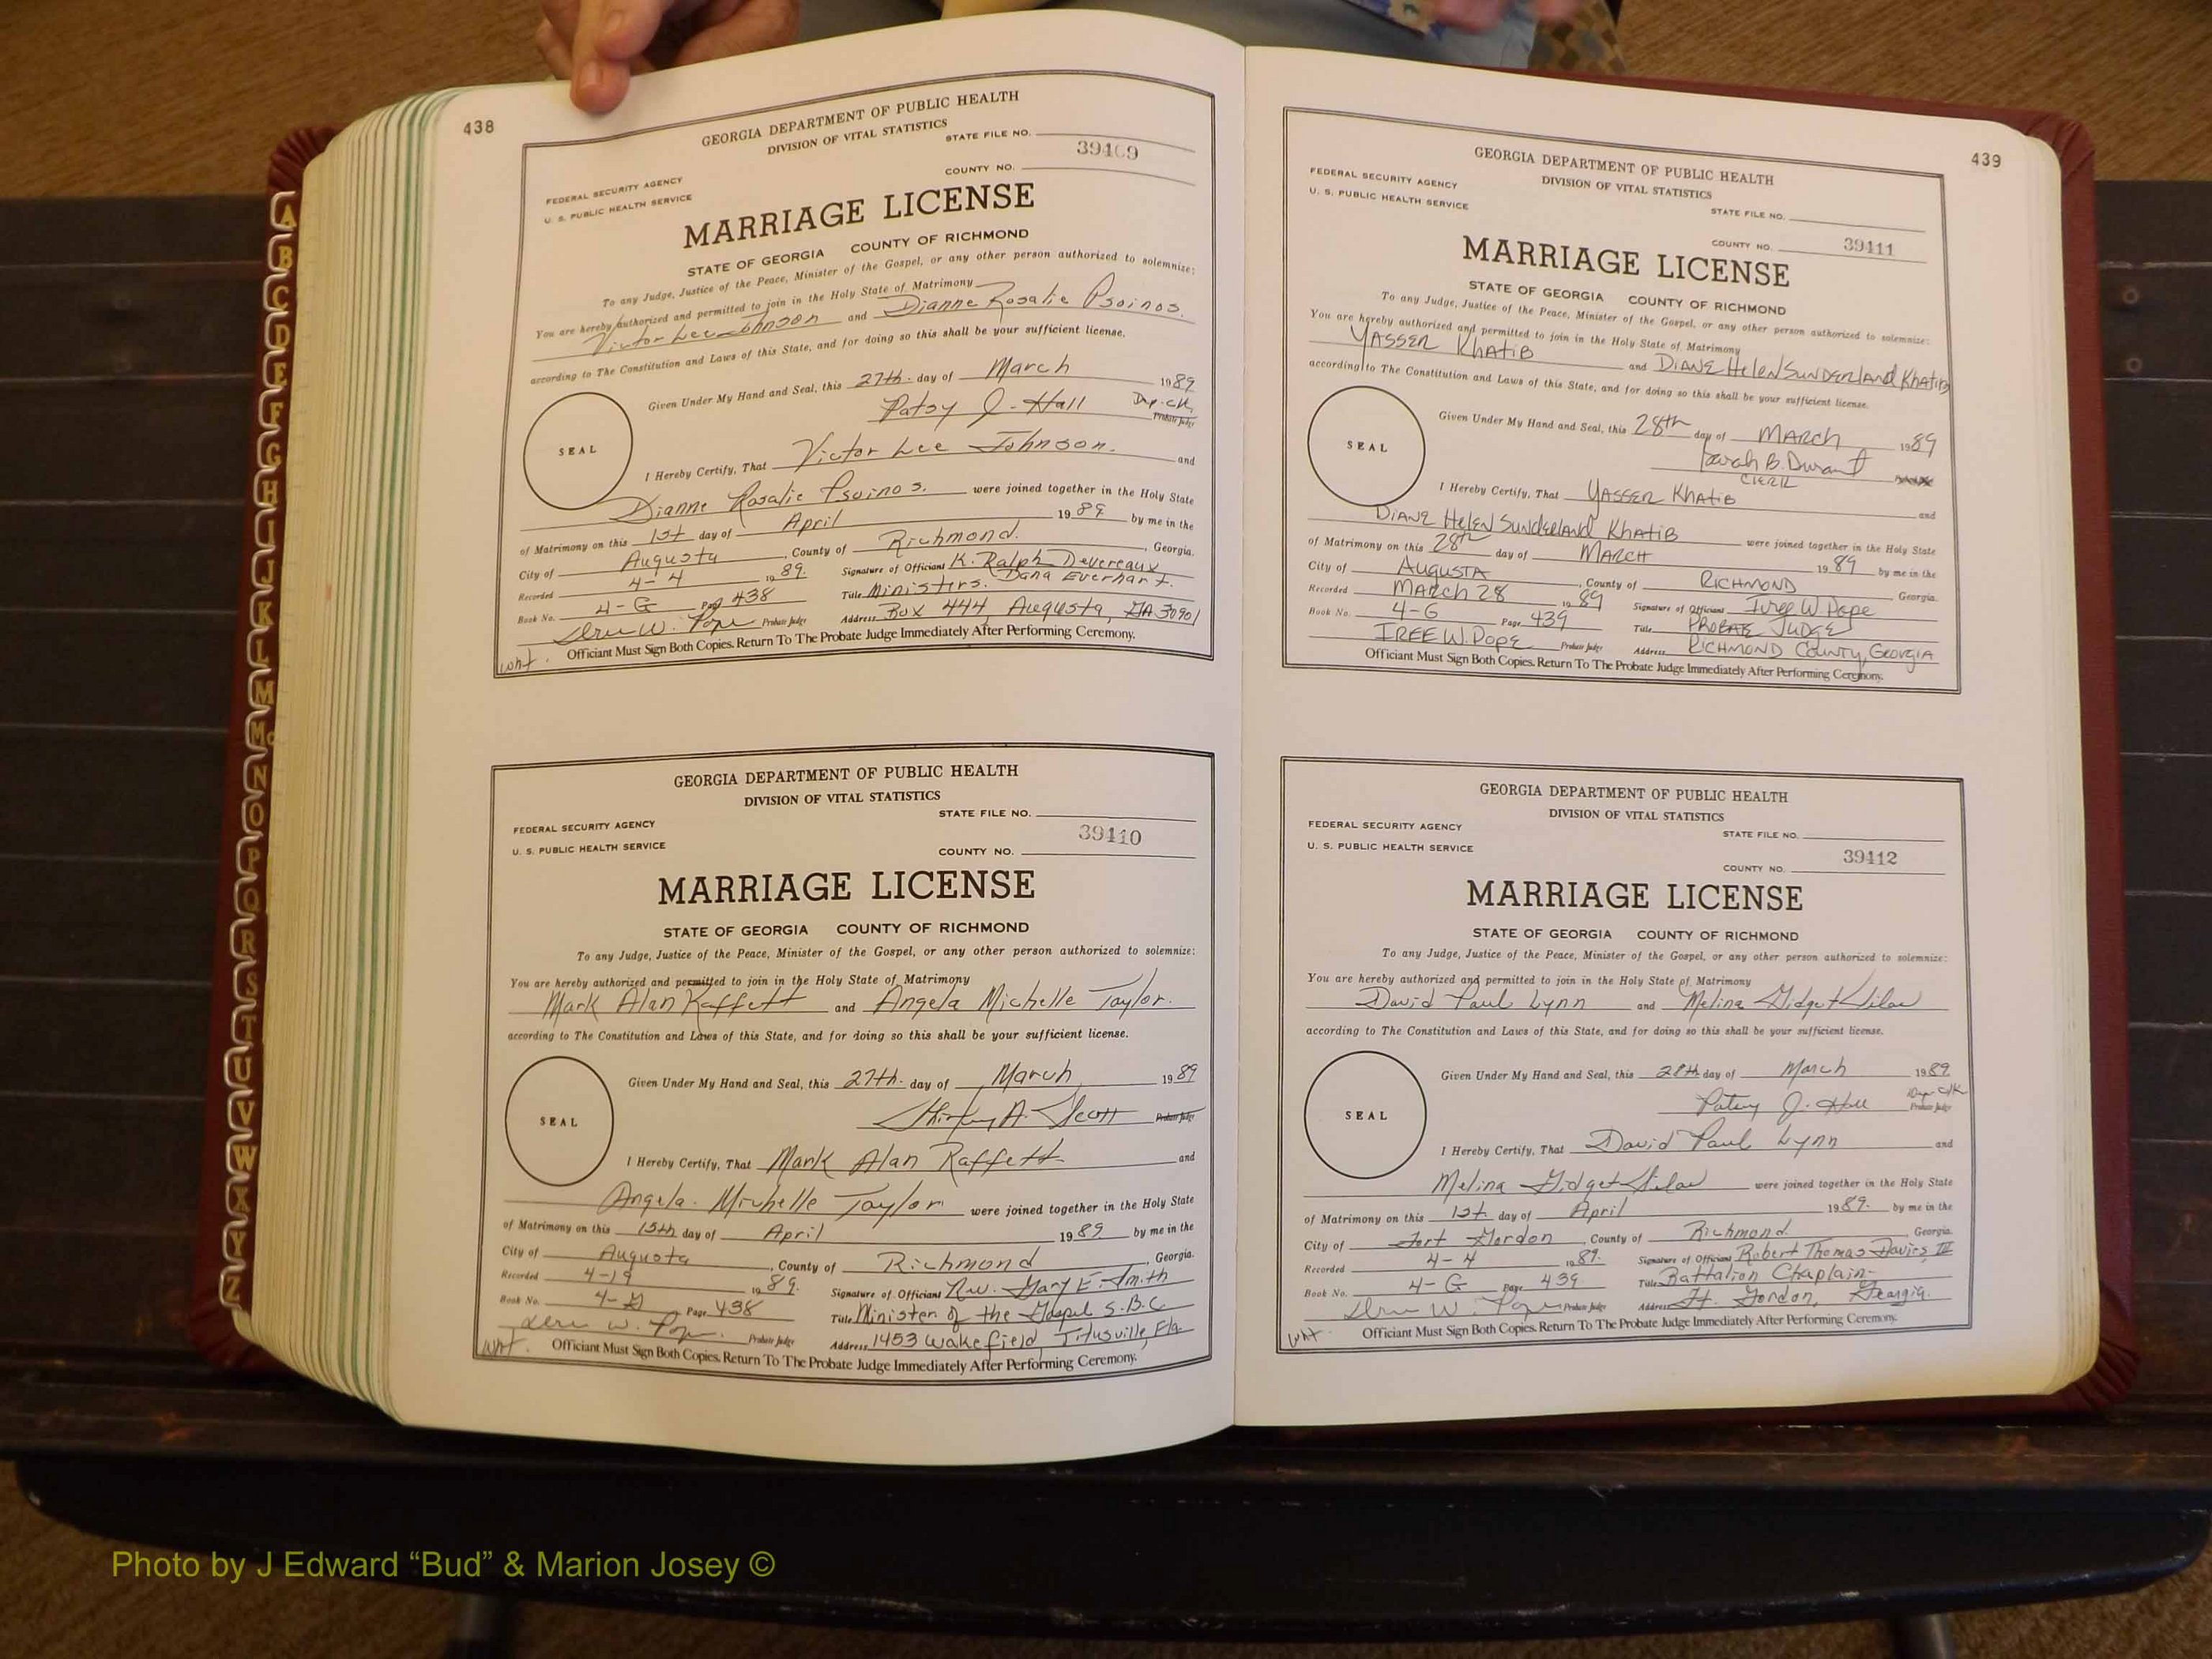 438
GEORGIA DEPARTMENT OF PUBLIC HEALTH
DIVISION OF VITAL STATISTICS
STATE FILE NO.
39409
FEDERAL SECURITY AGENCY
COUNTY NO.
U. S. PUBLIC HEALTH SERVICE
MARRIAGE LICENSE
STATE OF GEORGIA COUNTY OF RICHMOND
To any Judge, Justice of the Peace, Minister of the Gospel, or any other person authorized to solemnize:
You are hereby authorized and permitted to join in the Holy State of Matrimony
Victor Lee Johnson and Dianne Rosalie Psoinos.
according to The Constitution and Laws of this State, and for doing so this shall be your sufficient license.
Given Under My Hand and Seal, this 27th. day of March 1989
Patsy J. Hall Dep. Clk. Probate Judge
SEAL
I Hereby Certify, That Victor Lee Johnson. and
Dianne Rosalie Psoinos. were joined together in the Holy State
of Matrimony on this 1st day of April 1989 by me in the
City of Augusta, County of Richmond. Georgia.
Recorded 4-4 1989. Signature of Officiant K. Ralph Devereaux
Book No. 4-G Page 438 Title Ministers. Dana Everhart.
Probate Judge Address Box 444 Augusta, GA 30901
Officiant Must Sign Both Copies. Return To The Probate Judge Immediately After Performing Ceremony.
wht.
GEORGIA DEPARTMENT OF PUBLIC HEALTH
DIVISION OF VITAL STATISTICS
STATE FILE NO.
FEDERAL SECURITY AGENCY
39410
U. S. PUBLIC HEALTH SERVICE
COUNTY NO.
MARRIAGE LICENSE
STATE OF GEORGIA COUNTY OF RICHMOND
To any Judge, Justice of the Peace, Minister of the Gospel, or any other person authorized to solemnize:
You are hereby authorized and permitted to join in the Holy State of Matrimony
Mark Alan Raffett and Angela Michelle Taylor.
according to The Constitution and Laws of this State, and for doing so this shall be your sufficient license.
Given Under My Hand and Seal, this 27th. day of March 1989
Shirley A. Scott Probate Judge
SEAL
I Hereby Certify, That Mark Alan Raffett and
Angela Michelle Taylor were joined together in the Holy State
of Matrimony on this 15th day of April 1989 by me in the
City of Augusta, County of Richmond Georgia.
Recorded 4-19 1989. Signature of Officiant Rev. Gary E. Smith
Book No. 4-G Page 438 Title Minister of the Gospel S.B.C
Probate Judge Address 1453 Wakefield, Titusville, Fla.
Officiant Must Sign Both Copies. Return To The Probate Judge Immediately After Performing Ceremony.
wht.
439
GEORGIA DEPARTMENT OF PUBLIC HEALTH
DIVISION OF VITAL STATISTICS
FEDERAL SECURITY AGENCY
U. S. PUBLIC HEALTH SERVICE
STATE FILE NO.
COUNTY NO. 39411
MARRIAGE LICENSE
STATE OF GEORGIA COUNTY OF RICHMOND
To any Judge, Justice of the Peace, Minister of the Gospel, or any other person authorized to solemnize:
You are hereby authorized and permitted to join in the Holy State of Matrimony
YASSER KHATIB and DIANE HELEN SUNDERLAND KHATIB
according to The Constitution and Laws of this State, and for doing so this shall be your sufficient license.
Given Under My Hand and Seal, this 28th day of MARCH 1989
Sarah B. Durant
CLERK
SEAL
I Hereby Certify, That YASSER KHATIB and
DIANE HELEN SUNDERLAND KHATIB were joined together in the Holy State
of Matrimony on this 28th day of MARCH 1989 by me in the
City of AUGUSTA, County of RICHMOND Georgia.
Recorded MARCH 28 1989 Signature of Officiant Iree W. Pope
Book No. 4-G Page 439 Title PROBATE JUDGE
IREE W. POPE Probate Judge Address RICHMOND COUNTY, GEORGIA
Officiant Must Sign Both Copies. Return To The Probate Judge Immediately After Performing Ceremony.
GEORGIA DEPARTMENT OF PUBLIC HEALTH
DIVISION OF VITAL STATISTICS
FEDERAL SECURITY AGENCY
STATE FILE NO.
U. S. PUBLIC HEALTH SERVICE
39412
COUNTY NO.
MARRIAGE LICENSE
STATE OF GEORGIA COUNTY OF RICHMOND
To any Judge, Justice of the Peace, Minister of the Gospel, or any other person authorized to solemnize:
You are hereby authorized and permitted to join in the Holy State of Matrimony
David Paul Lynn and Melina Gidget
according to The Constitution and Laws of this State, and for doing so this shall be your sufficient license.
Given Under My Hand and Seal, this 28th day of March 1989
Patsy J. Hall Dep. Clk Probate Judge
SEAL
I Hereby Certify, That David Paul Lynn and
Melina Gidget were joined together in the Holy State
of Matrimony on this 1st. day of April 1989. by me in the
City of Fort Gordon, County of Richmond. Georgia.
Recorded 4-4 1989. Signature of Officiant Robert Thomas Davies III
Book No. 4-G Page 439. Title Battalion Chaplain
Probate Judge Address Ft. Gordon, Georgia.
Officiant Must Sign Both Copies. Return To The Probate Judge Immediately After Performing Ceremony.
wht.
A
B
C
D
E
F
G
H
I
J
K
L
M
Mc
N
O
P
Q
R
S
T
U
V
W
X
Y
Z
Photo by J Edward “Bud” & Marion Josey ©